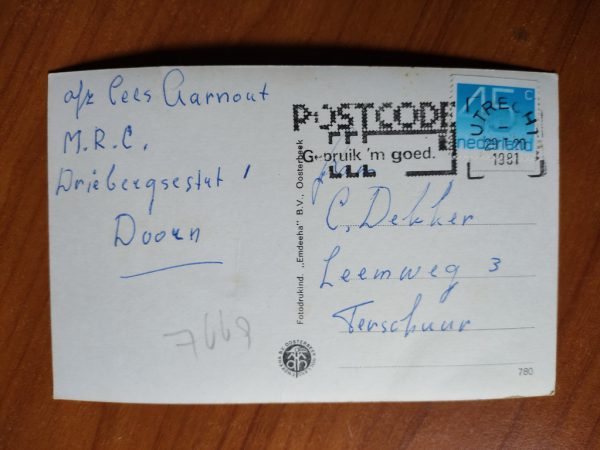 afz Cees Aarnout
M.R.C.
Driebergsestat 1
Doorn
7668
Fotodrukind. „Emdeeha" B.V., Oosterbeek
POSTCODE
Gebruik 'm goed.
45 c
nederland
UTRECHT
1981
C. Dekker
Leemweg 3
Terschuur
780